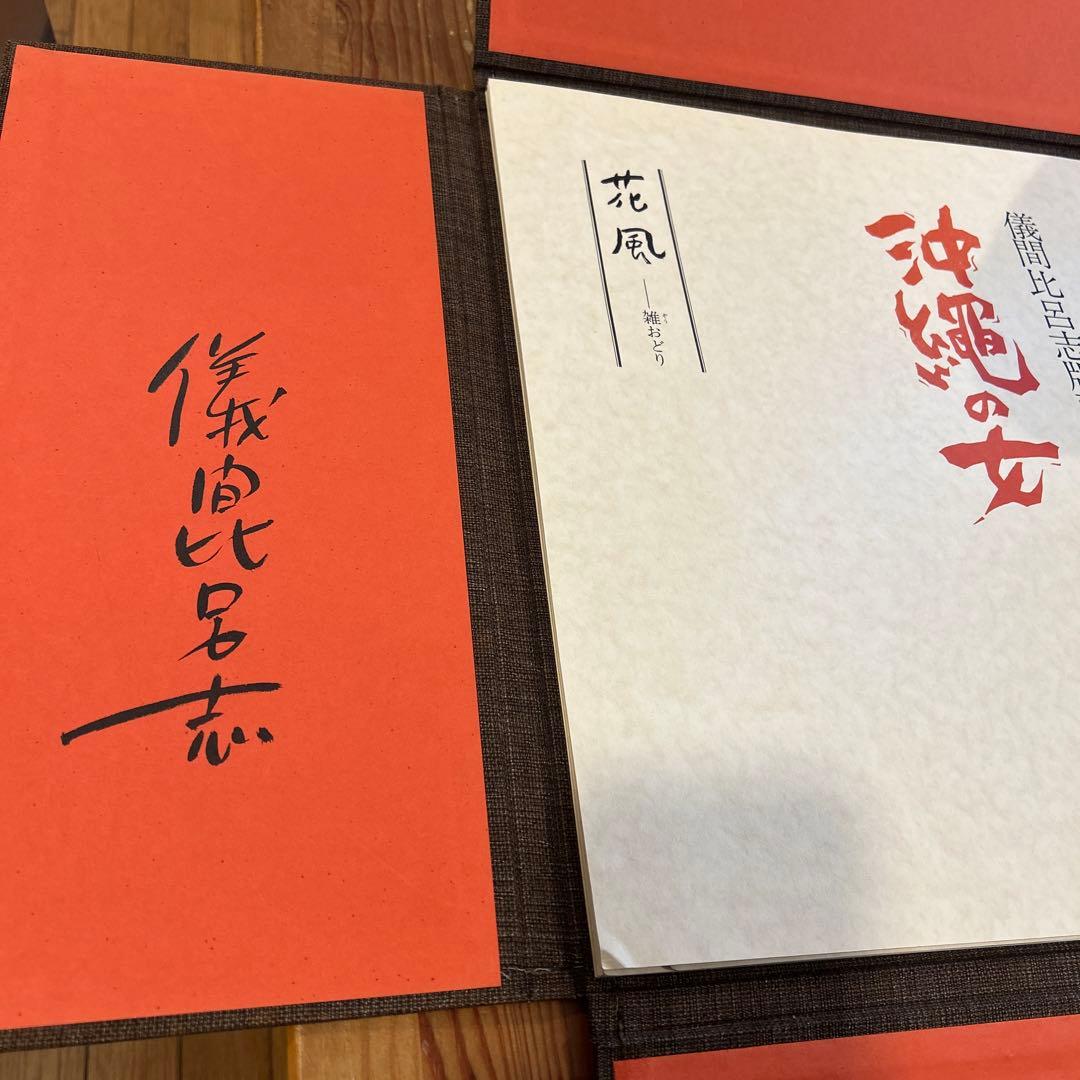 儀間比呂志
儀間比呂志版
沖縄の女
花風
雑おどり
ぞう